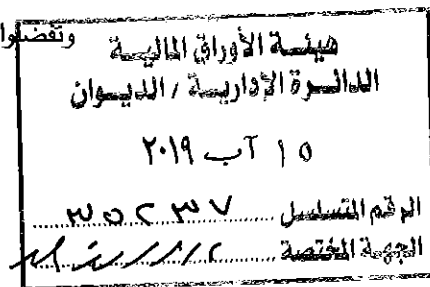 وتفضلوا
هيئة الأوراق المالية
الدائرة الإدارية / الديوان
١٥ آب ٢٠١٩
الرقم المتسلسل ٣٥٢٣٧
الجهة المختصة